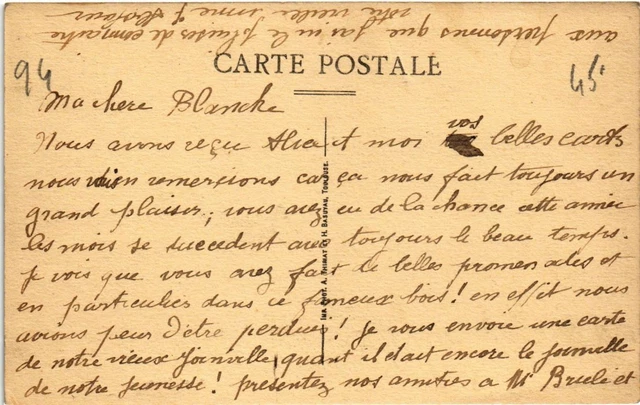 CARTE POSTALE
94
45
Ma chere Blanche
Nous avons reçu et moi vos belles carts
nous vous en remercions car ça nous fait toujours un
grand plaisir; vous avez eu de la chance cette année
les mois se succedent avec toujours le beau temps.
Je vois que vous avez fait de belles promenades et
en particulier dans ce fameux bois! en effet nous
avions peur d'être perdues! Je vous envoie une carte
de notre vieux Joinville, quant il était encore le Joinville
de notre jeunesse! présentez nos amitiés a Mr Brulé et
aux personnes que j'ai eu le plaisir de connaitre
votre vieille amie
IMP. PHOT. A. THIRIAT ET H. BASUYAU, TOULOUSE.